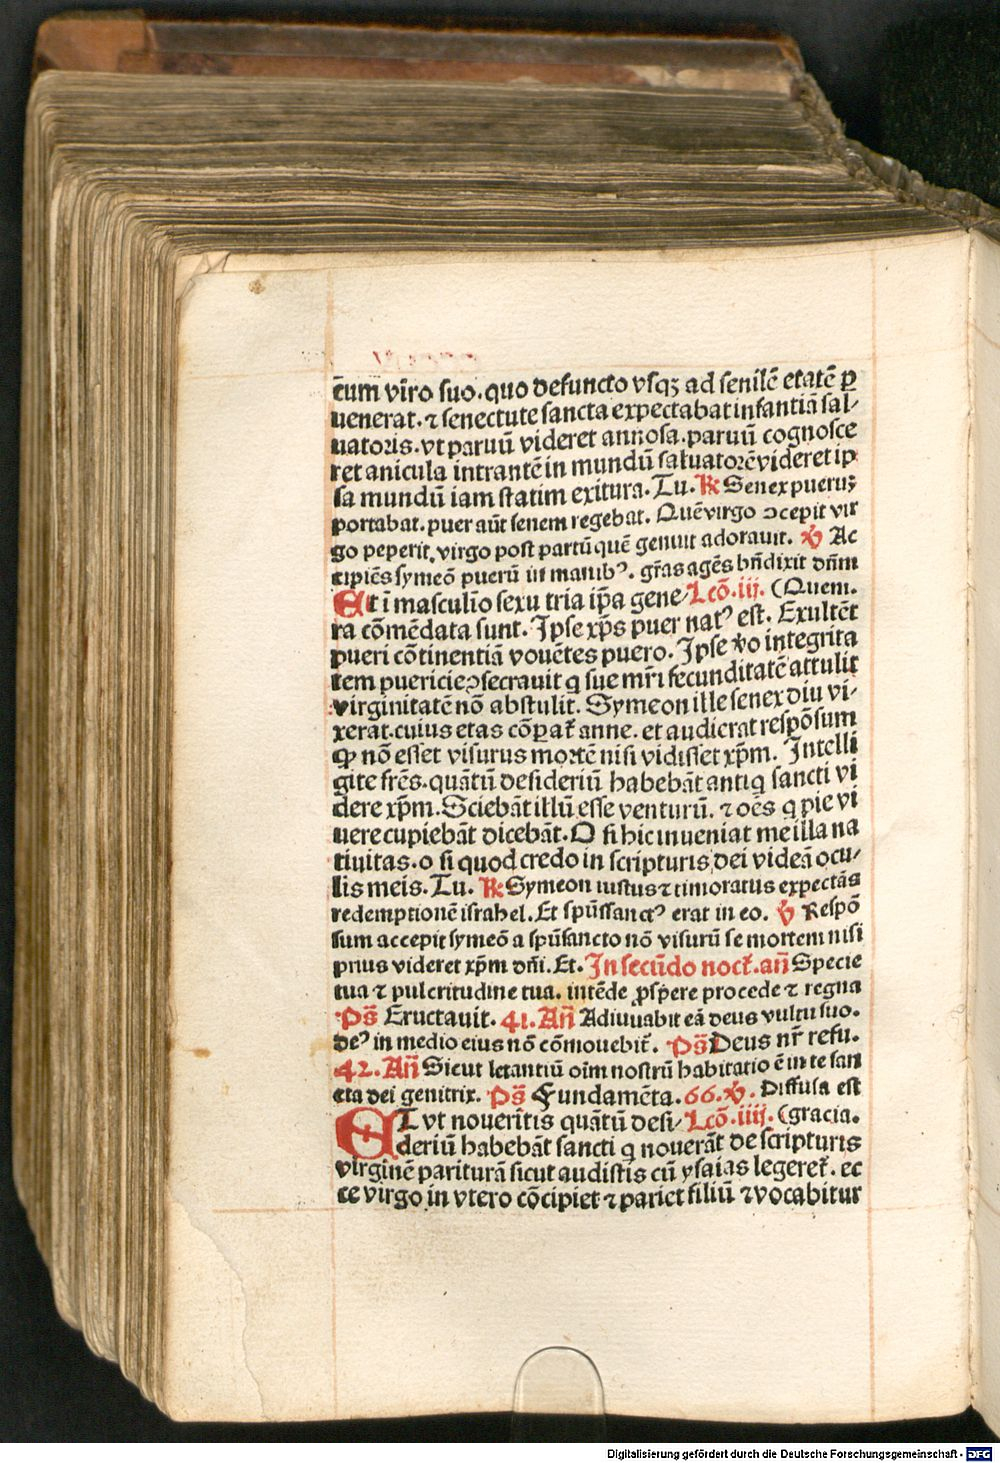 cũm viro suo. quo defuncto vsqꝫ ad senilẽ etatẽ ꝑ
uenerat. ⁊ senectute sancta expectabat infantiã sal/
uatoris. vt paruũ videret annosa. paruũ cognosce
ret anicula intrantẽ in mundũ saluatorẽ videret ip
sa mundũ iam statim exitura. Tu. ℟ Senex pueruꝫ
portabat. puer aũt senem regebat. Quẽ virgo ↄcepit vir
go peperit. virgo post partũ quẽ genuit adorauit. ℣ Ac
cipiẽs symeõ puerũ in manibꝰ. gr̃as agẽs bñdixit dñm
Et ĩ masculĩo sexu tria ip̃a gene/ Lcõ. iij. (Quem.
ra cõmẽdata sunt. Ipse xp̃s puer natꝰ est. Exultẽt
pueri cõtinentiã vouẽtes puero. Ipse v̾o integrita
tem puericie ↄsecrauit q sue mr̃i fecunditatẽ attulit
virginitatẽ nõ abstulit. Symeon ille senex diu vi/
xerat. cuius etas cõꝑat᷑ anne. et audierat respõsum
ꝙ nõ esset visurus mortẽ nisi vidisset xp̃m. Intelli
gite fr̃es. quãtũ desideriũ habebãt antiq̃ sancti vi
dere xp̃m. Sciebãt illũ esse venturũ. ⁊ oẽs q̃ pie vi
uere cupiebãt dicebãt. O si hic inueniat me illa na
tiuitas. o si quod credo in scripturis dei videã ocu/
lis meis. Tu. ℟ Symeon iustus ⁊ timoratus expectãs
redemptionẽ israhel. Et spũssanctꝰ erat in eo. ℣ Respõ
sum accepit symeõ a spũsancto nõ visurũ se mortem nisi
prius videret xp̃m dñi. Et. In secũdo noct᷑. añ Specie
tua ⁊ pulcritudine tua. intẽde ꝓspere procede ⁊ regna
Ps̃ Eructauit. 41. Añ Adiuuabit eã deus vultu suo.
deꝰ in medio eius nõ cõmouebit᷑. Ps̃ Deus nr̃ refu.
42. Añ Sicut letantiũ oĩm nostrũ habitatio ẽ in te san
cta dei genitrix. Ps̃ Fundamẽta. 66. ℣. Diffusa est
ET vt noueritis quãtũ desi/ Lcõ. iiij. (gracia.
deriũ habebãt sancti q̃ nouerãt de scripturis
virginẽ pariturã sicut audistis cũ ysaias legeret᷑. ec
ce virgo in vtero cõcipiet ⁊ pariet filiũ ⁊ vocabitur
Digitalisierung gefördert durch die Deutsche Forschungsgemeinschaft - DFG